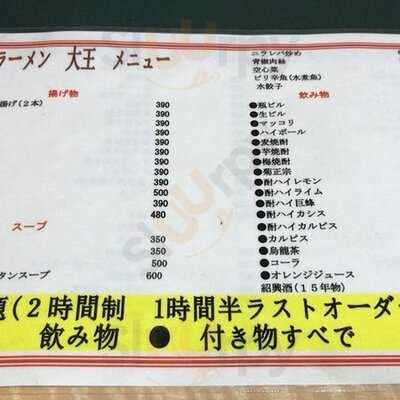 ラーメン 大王 メニュー
揚げ物
揚げ(2本) 390
390
390
390
390
390
390
500
390
480
スープ
350
350
500
タンスープ 600
ニラレバ炒め
青椒肉絲
空心菜
ピリ辛魚(水煮魚)
水餃子
飲み物
●瓶ビル
●生ビル
●マッコリ
●ハイボール
●麦焼酎
●芋焼酎
●梅焼酎
●菊正宗
●酎ハイレモン
●酎ハイライム
●酎ハイ巨蜂
●酎ハイカシス
●酎ハイカルピス
●カルピス
●烏龍茶
●コーラ
●オレンジジュース
紹興酒(15年物)
題(2時間制 1時間半ラストオーダ
飲み物 ● 付き物すべで